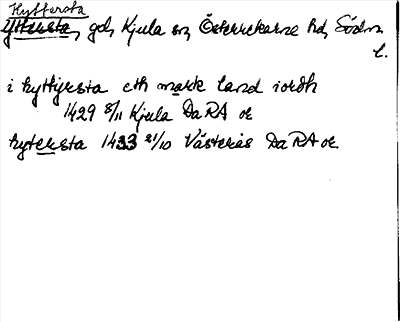 Hyttersta
Yttersta, gd, Kjula sn, Österrekarne hd, Södm.
l.
i hyttyrsta eth mark land iordh
1429 8/11 Kjula Da RA or
hytersta 1433 21/10 Västerås Da RA or